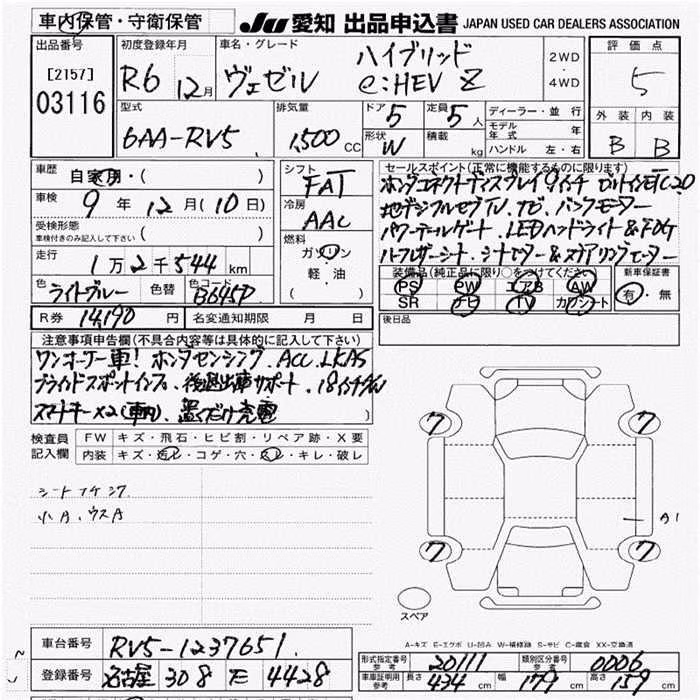 車内保管・守衛保管
JU 愛知 出品申込書 JAPAN USED CAR DEALERS ASSOCIATION
出品番号
[2157]
03116
初度登録年月
R6 12月
車名・グレード
ハイブリッド
ヴェゼル e:HEV Z
2WD
・
4WD
評価点
5
外装 内装
B B
型式
6AA-RV5
排気量
1,500 CC
ドア 5
定員 5人
形状 W
積載 kg
ディーラー・並行
モデル年式 年
ハンドル 左・右
車歴
自家用・( )
車検
9年12月(10日)
受検形態
車検付きのみ記入して下さい ( )
走行
1万2千544km
色
ライトブルー
色替
色コード
B645P
シフト
FAT
冷房
AAC
燃料
ガソリン
軽・油
( )
セールスポイント(正常に機能するものに限ります)
ホンダコネクトディスプレイ9インチ ビルトインETC2.0
地デジフルセグTV、ナビ、バックモーター
パワーテールゲート、LEDヘッドライト&FOG
ハーフレザーシート、シートヒーター&ステアリングヒーター
装備品(純正品に限り○をつけてください)
PS PW エアB AW
SR ナビ TV カワシート
新車保証書
有・無
R券 14,190円
名変通知期限 月 日
後日品
注意事項申告欄(不具合内容等は具体的に記入して下さい)
ワンオーナー車! ホンダセンシング、ACC、LKAS
ブラインドスポットインフォ、後退出庫サポート、18インチAW
スマートキー×2(車内)、置くだけ充電
検査員
記入欄
FW キズ・飛石・ヒビ割・リペア跡・X要
内装 キズ・汚レ・コゲ・穴・スレ・キレ・破レ
小A、ウスA
ワ ワ
ワ ワ
A1
スペア
A-キズ E-エクボ U-凹み W-補修跡 S-サビ C-腐食 XX-交換済
車台番号 RV5-1237651
登録番号 名古屋 308 モ 4428
形式指定番号 参考 20111
類別区分番号 参考 0006
車庫証明用 参考 長さ 434cm 幅 179cm 高さ 159cm